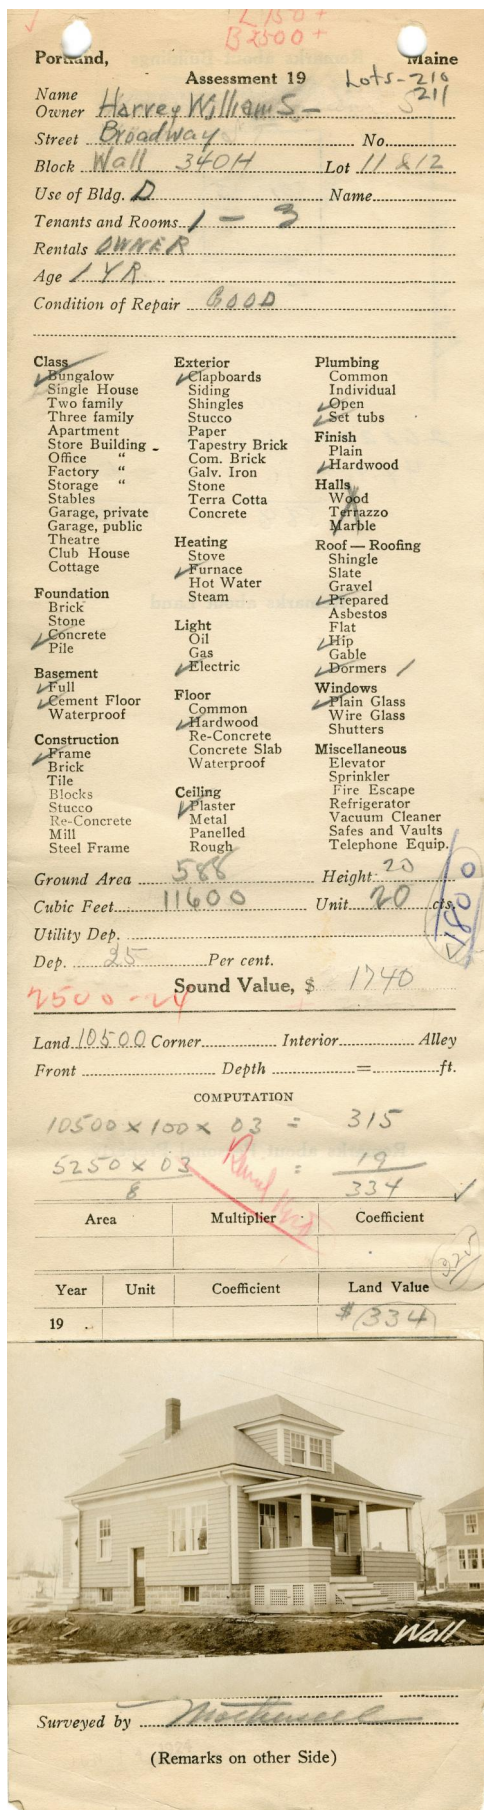 L 150 +
B 2500 +
Portland, Maine
Assessment 19
Lots - 210
211
Name
Owner Harvey Williams -
Street Broadway No.
Block Wall 340H Lot 11 & 12
Use of Bldg. D Name
Tenants and Rooms 1 - 3
Rentals OWNER
Age 1 YR
Condition of Repair GOOD
Class
Bungalow
Single House
Two family
Three family
Apartment
Store Building
Office "
Factory "
Storage "
Stables
Garage, private
Garage, public
Theatre
Club House
Cottage
Foundation
Brick
Stone
Concrete
Pile
Basement
Full
Cement Floor
Waterproof
Construction
Frame
Brick
Tile
Blocks
Stucco
Re-Concrete
Mill
Steel Frame
Exterior
Clapboards
Siding
Shingles
Stucco
Paper
Tapestry Brick
Com. Brick
Galv. Iron
Stone
Terra Cotta
Concrete
Heating
Stove
Furnace
Hot Water
Steam
Light
Oil
Gas
Electric
Floor
Common
Hardwood
Re-Concrete
Concrete Slab
Waterproof
Ceiling
Plaster
Metal
Panelled
Rough
Plumbing
Common
Individual
Open
Set tubs
Finish
Plain
Hardwood
Halls
Wood
Terrazzo
Marble
Roof — Roofing
Shingle
Slate
Gravel
Prepared
Asbestos
Flat
Hip
Gable
Dormers /
Windows
Plain Glass
Wire Glass
Shutters
Miscellaneous
Elevator
Sprinkler
Fire Escape
Refrigerator
Vacuum Cleaner
Safes and Vaults
Telephone Equip.
Ground Area 588 Height 20
Cubic Feet 11600 Unit 20 cts.
1800
Utility Dep.
Dep. 25 Per cent.
Sound Value, $ 1740
2500 - 24
Land 10500 Corner Interior Alley
Front Depth = ft.
COMPUTATION
10500 x 100 x 03 = 315
5250 x 03 = 19
8 334
Area Multiplier Coefficient
325
Year Unit Coefficient Land Value
19 $ 334
Wall
Surveyed by
(Remarks on other Side)